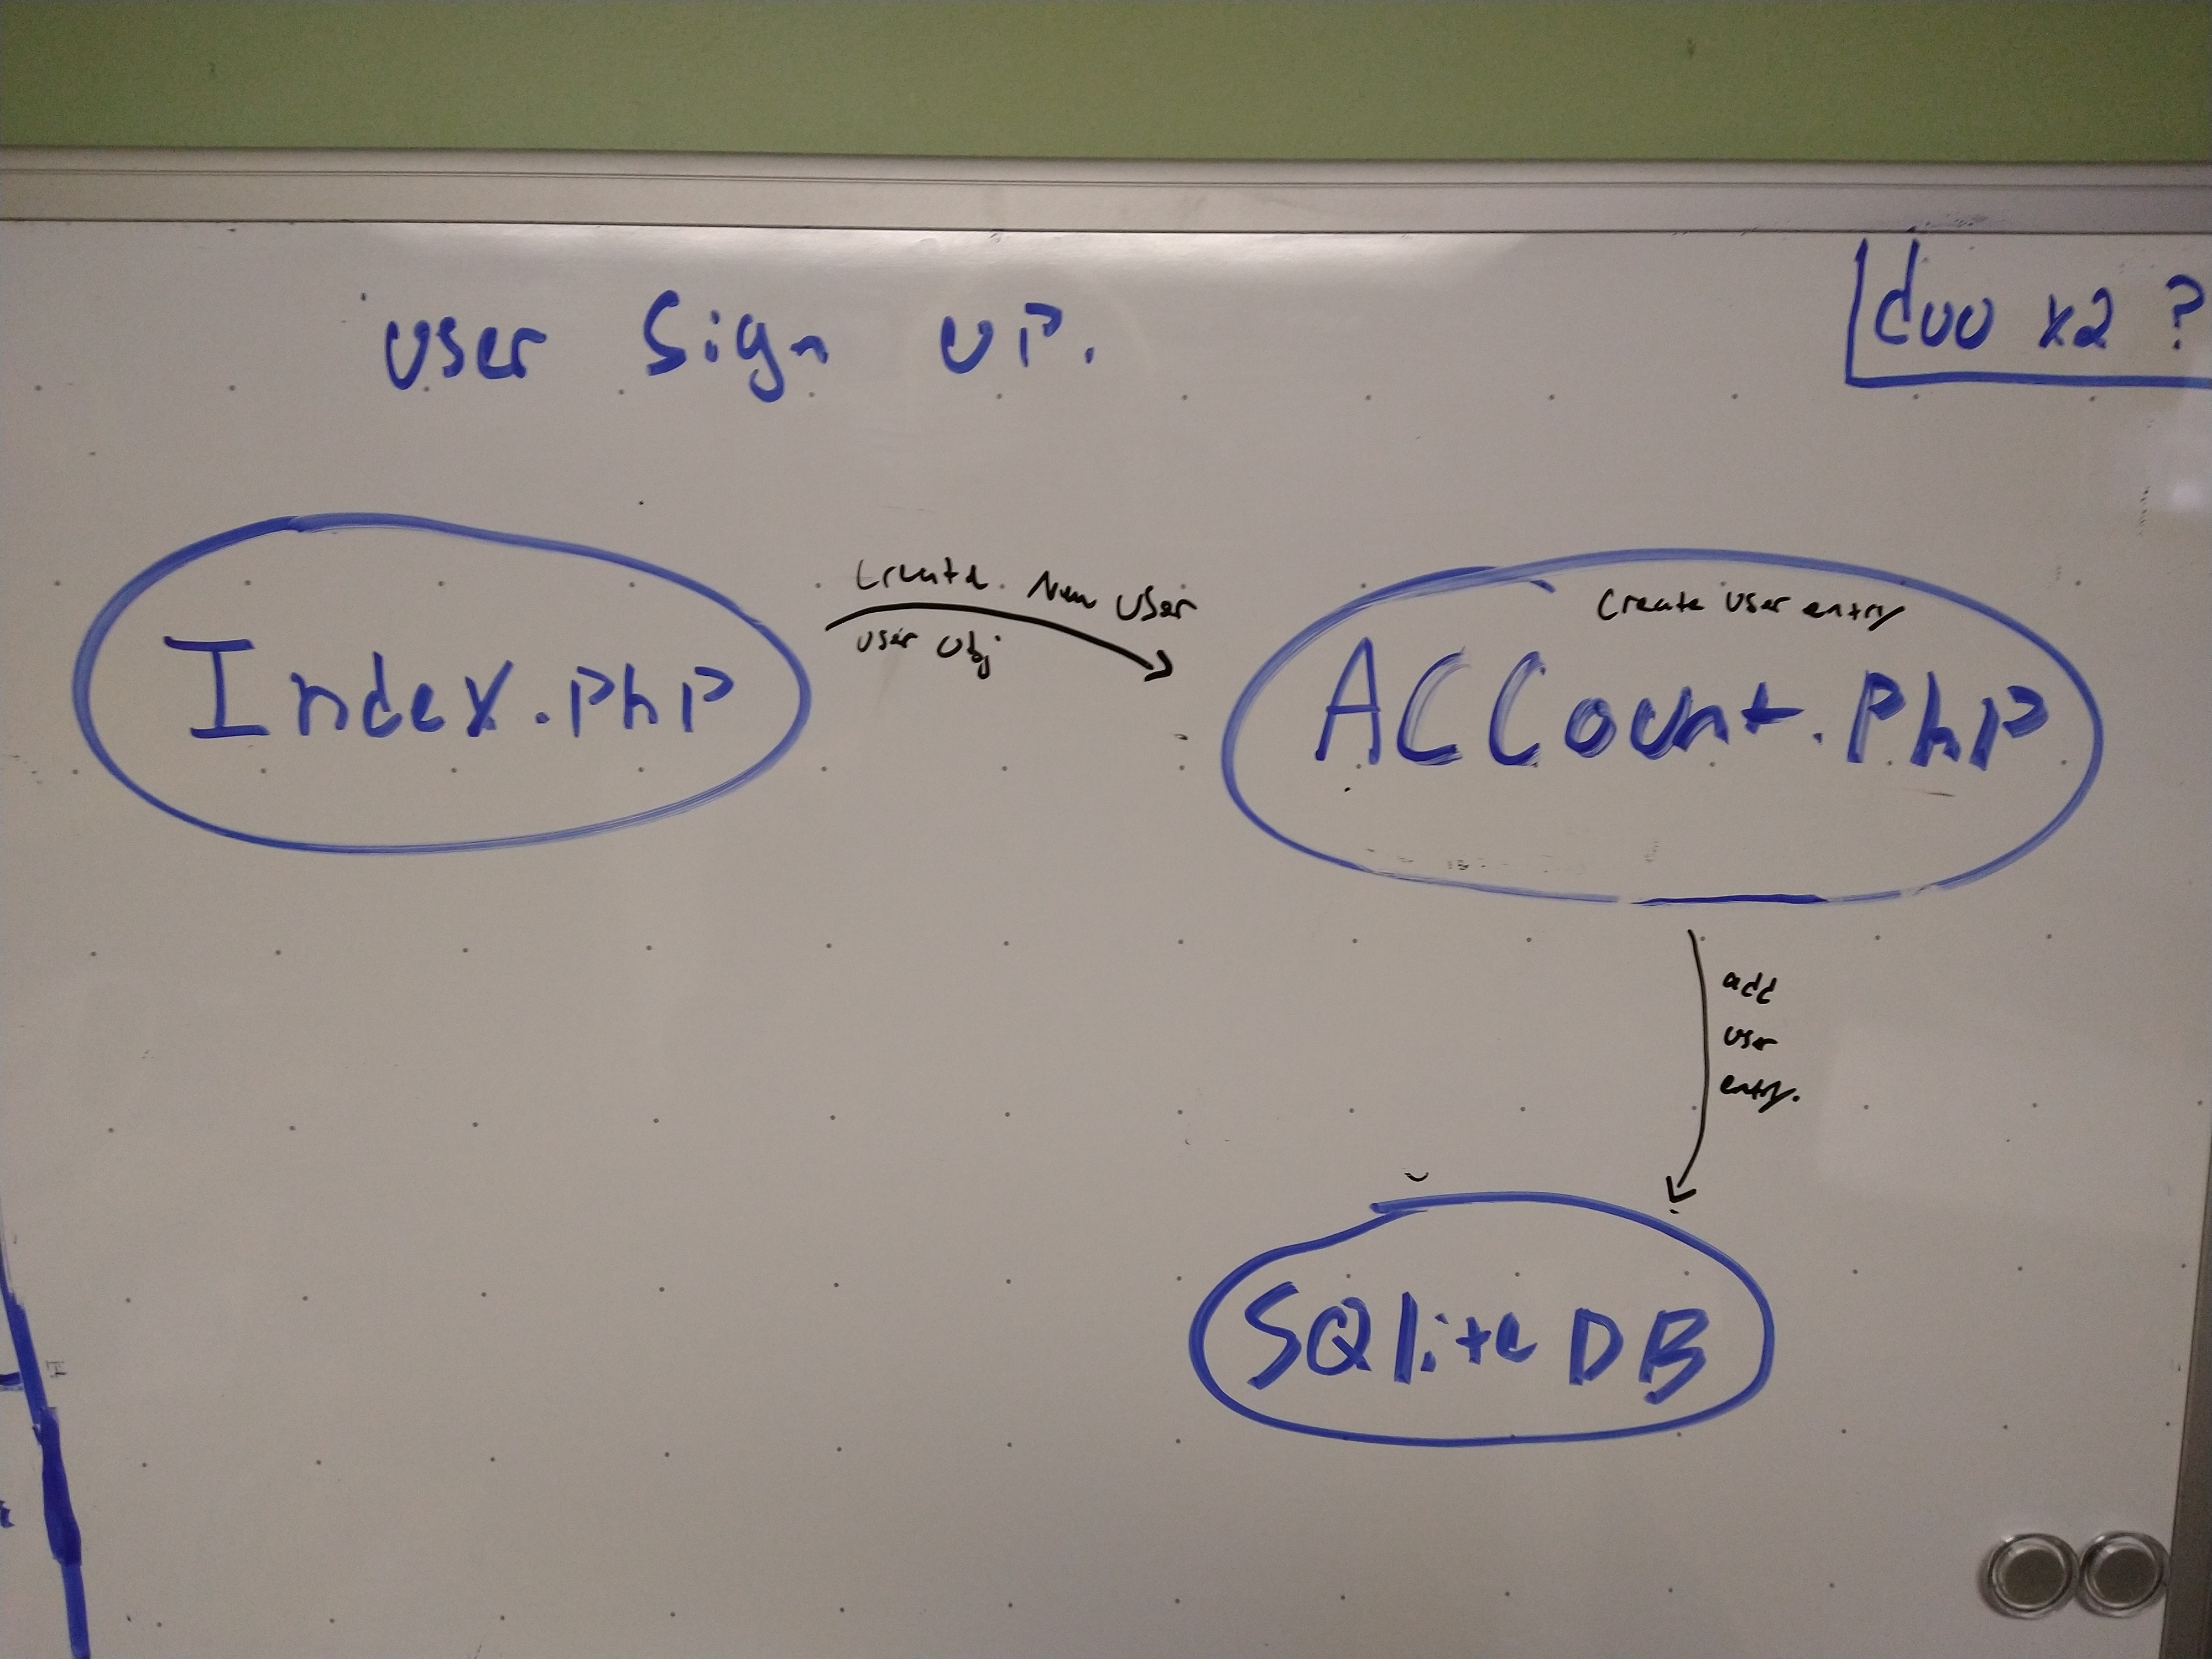 User Sign UP.
duo x2 ?
Create New User
User Obj
Index.PhP
Create User entry
ACCount.PhP
add
user
entry.
SQlite DB